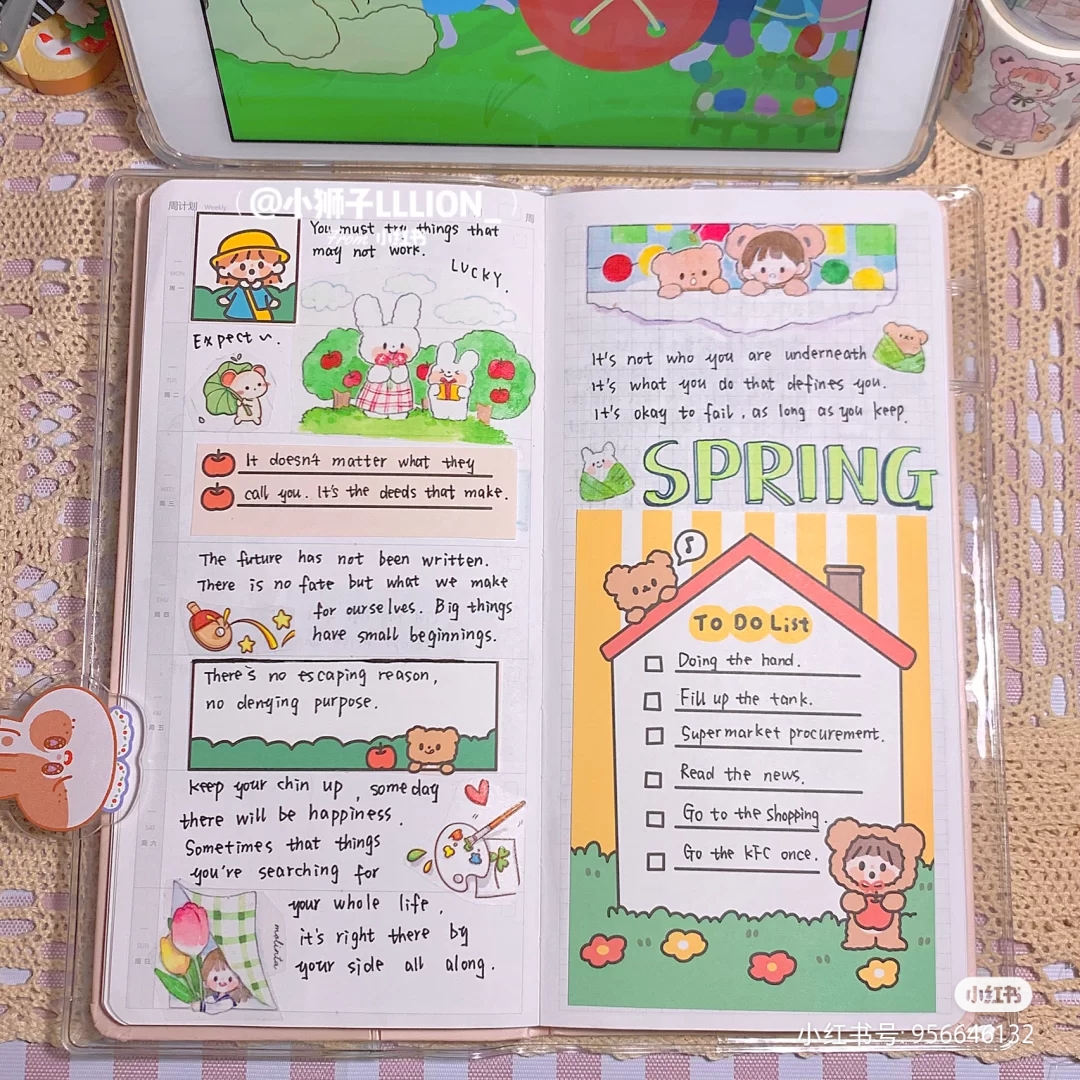 @小狮子LLLION_
周计划 Weekly
周
You must try things that
may not work.
LUCKY.
Expect~.
It doesn't matter what they
call you. It's the deeds that make.
The future has not been written.
There is no fate but what we make
for ourselves. Big things
have small beginnings.
There's no escaping reason,
no denying purpose.
keep your chin up, someday
there will be happiness.
Sometimes that things
you're searching for
your whole life,
it's right there by
your side all along.
molinta
It's not who you are underneath
It's what you do that defines you.
It's okay to fail, as long as you keep.
SPRING
To Do List
Doing the hand.
Fill up the tank.
Supermarket procurement.
Read the news.
Go to the shopping.
Go the KFC once.
小红书
小红书号: 956646132